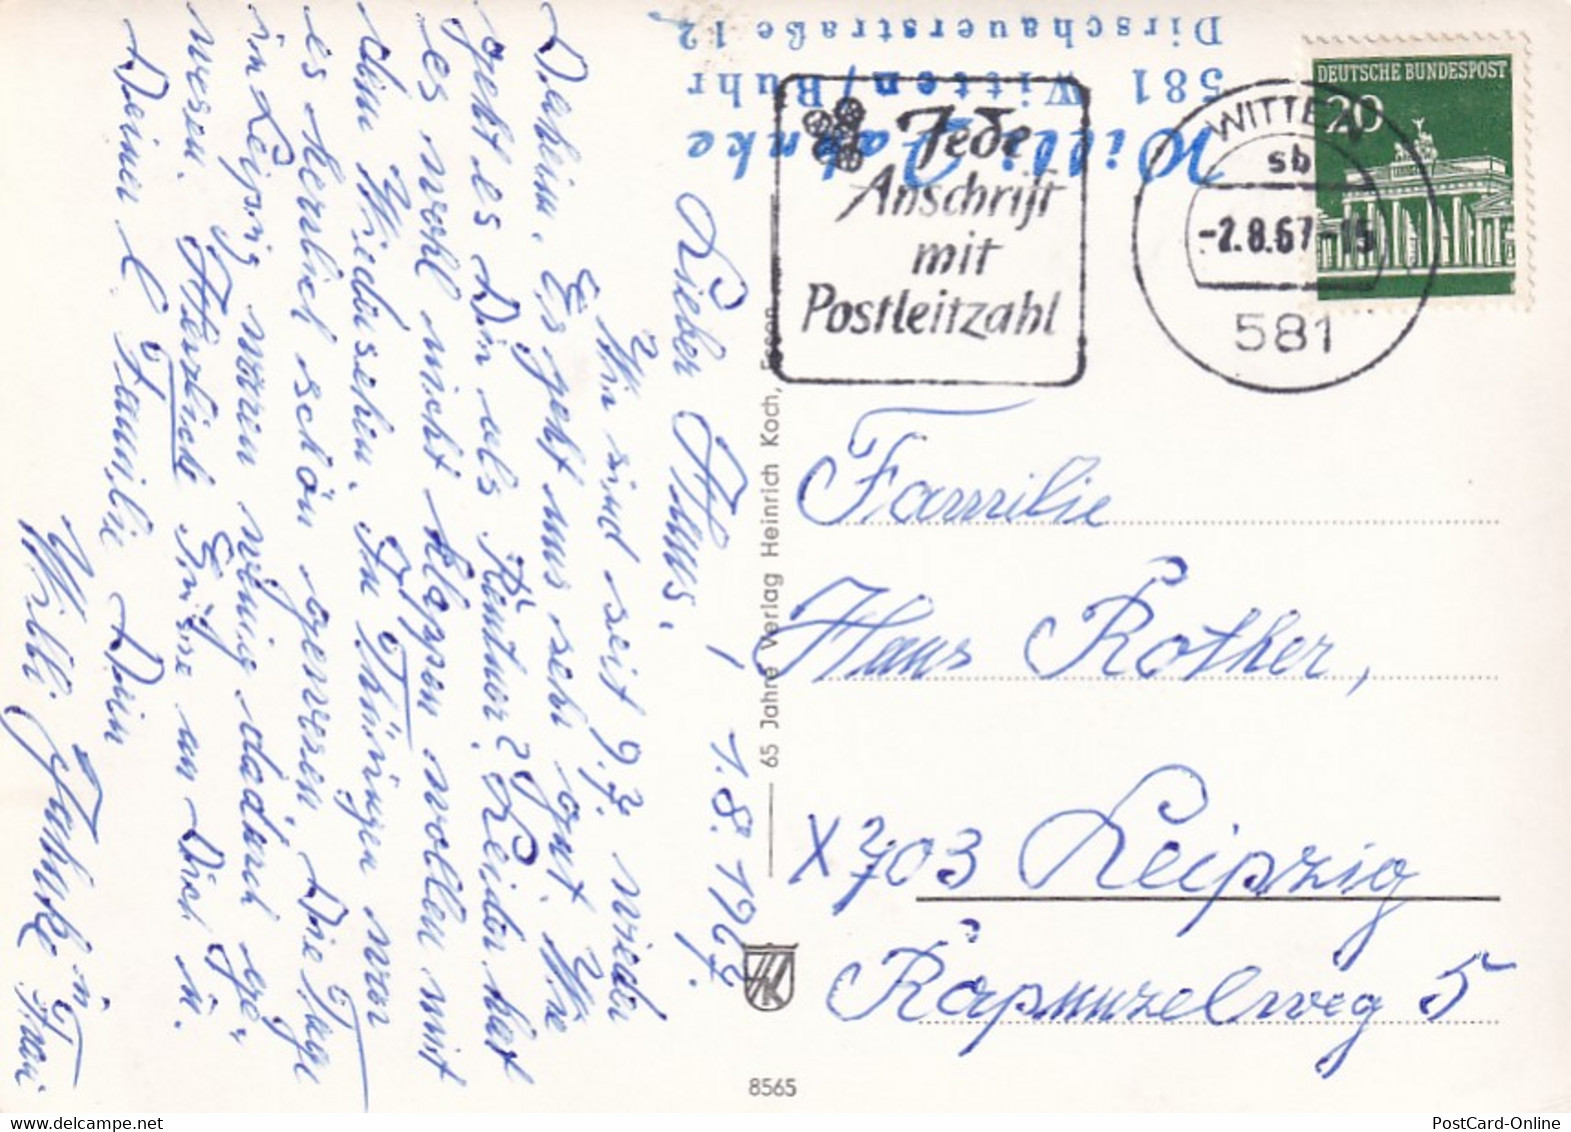 Lieber Hans, 1.8.1967.
Wir sind seit 9.7. wieder
Daheim. Es geht uns sehr gut. Wie
geht es Dir als Rentner? Leider hat
es wohl nicht klappen wollen mit
dem Wiedersehen. In Thüringen war
es herrlich schön gewesen. Die Tage
in Leipzig waren wenig dadurch ge-
wesen. Herzlich Grüße an Dich u.
Deiner l. Familie Dein
Willi Jahnke u. Frau
Willi Jahnke
581 Witten/Ruhr
Dirschauerstraße 12
Jede
Anschrift
mit
Postleitzahl
WITTEN
sb
-2.8.67-15
581
DEUTSCHE BUNDESPOST
20
65 Jahre Verlag Heinrich Koch, Essen
HK
8565
Familie
Hans Rother,
X 703 Leipzig
Rapunzelweg 5
the-world-of-postcards.com
PostCard-Online